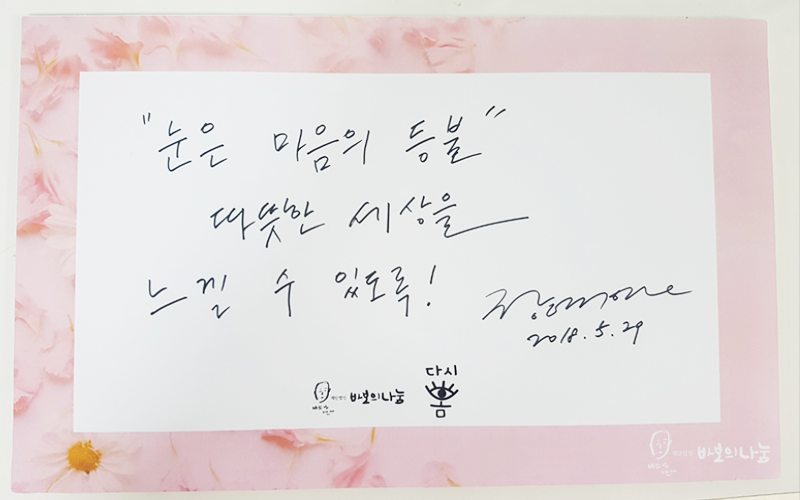 "눈은 마음의 등불"
따뜻한 세상을
느낄 수 있도록!
2018.5.29
다시
봄
재단법인 바보의나눔
바보의나눔